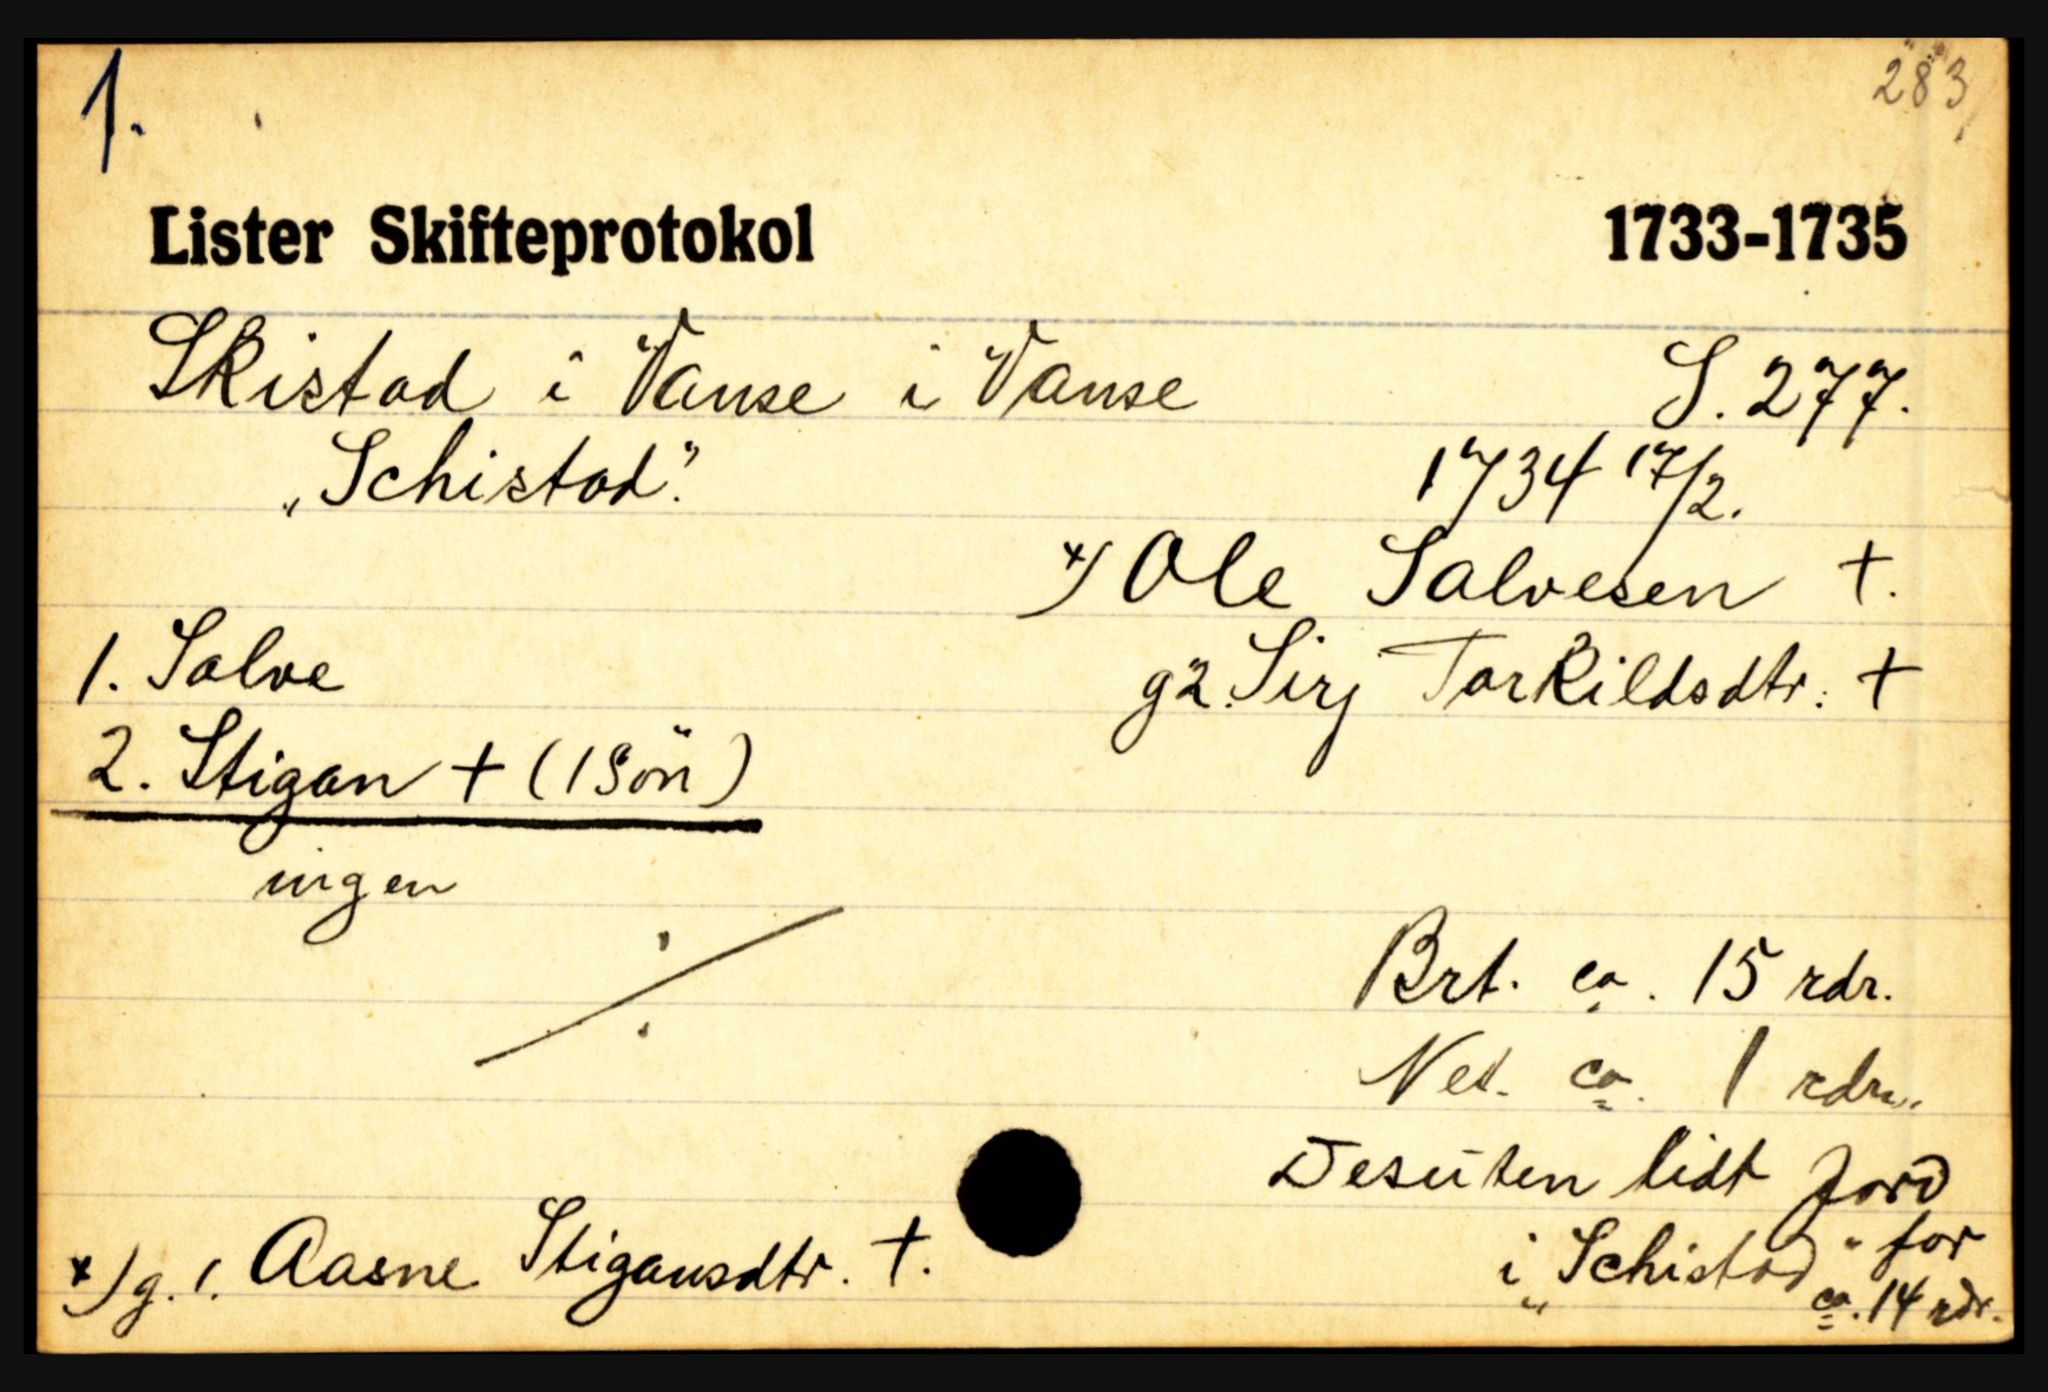 1.
283
Lister Skifteprotokol 1733-1735
Skistad i Vanse i Vanse S. 277.
„Schistad". 1734 17/2.
x) Ole Salvesen +.
1. Salve g2. Sirj Torkildsdtr. +
2. Stigan + (1 Sön)
ingen
./.
Brt. ca. 15 rdr.
Net. ca. 1 rdr.
Desuten lidt jord
i „Schistad" for
ca. 14 rdr.
x) g. 1. Aasne Stigansdtr. +.